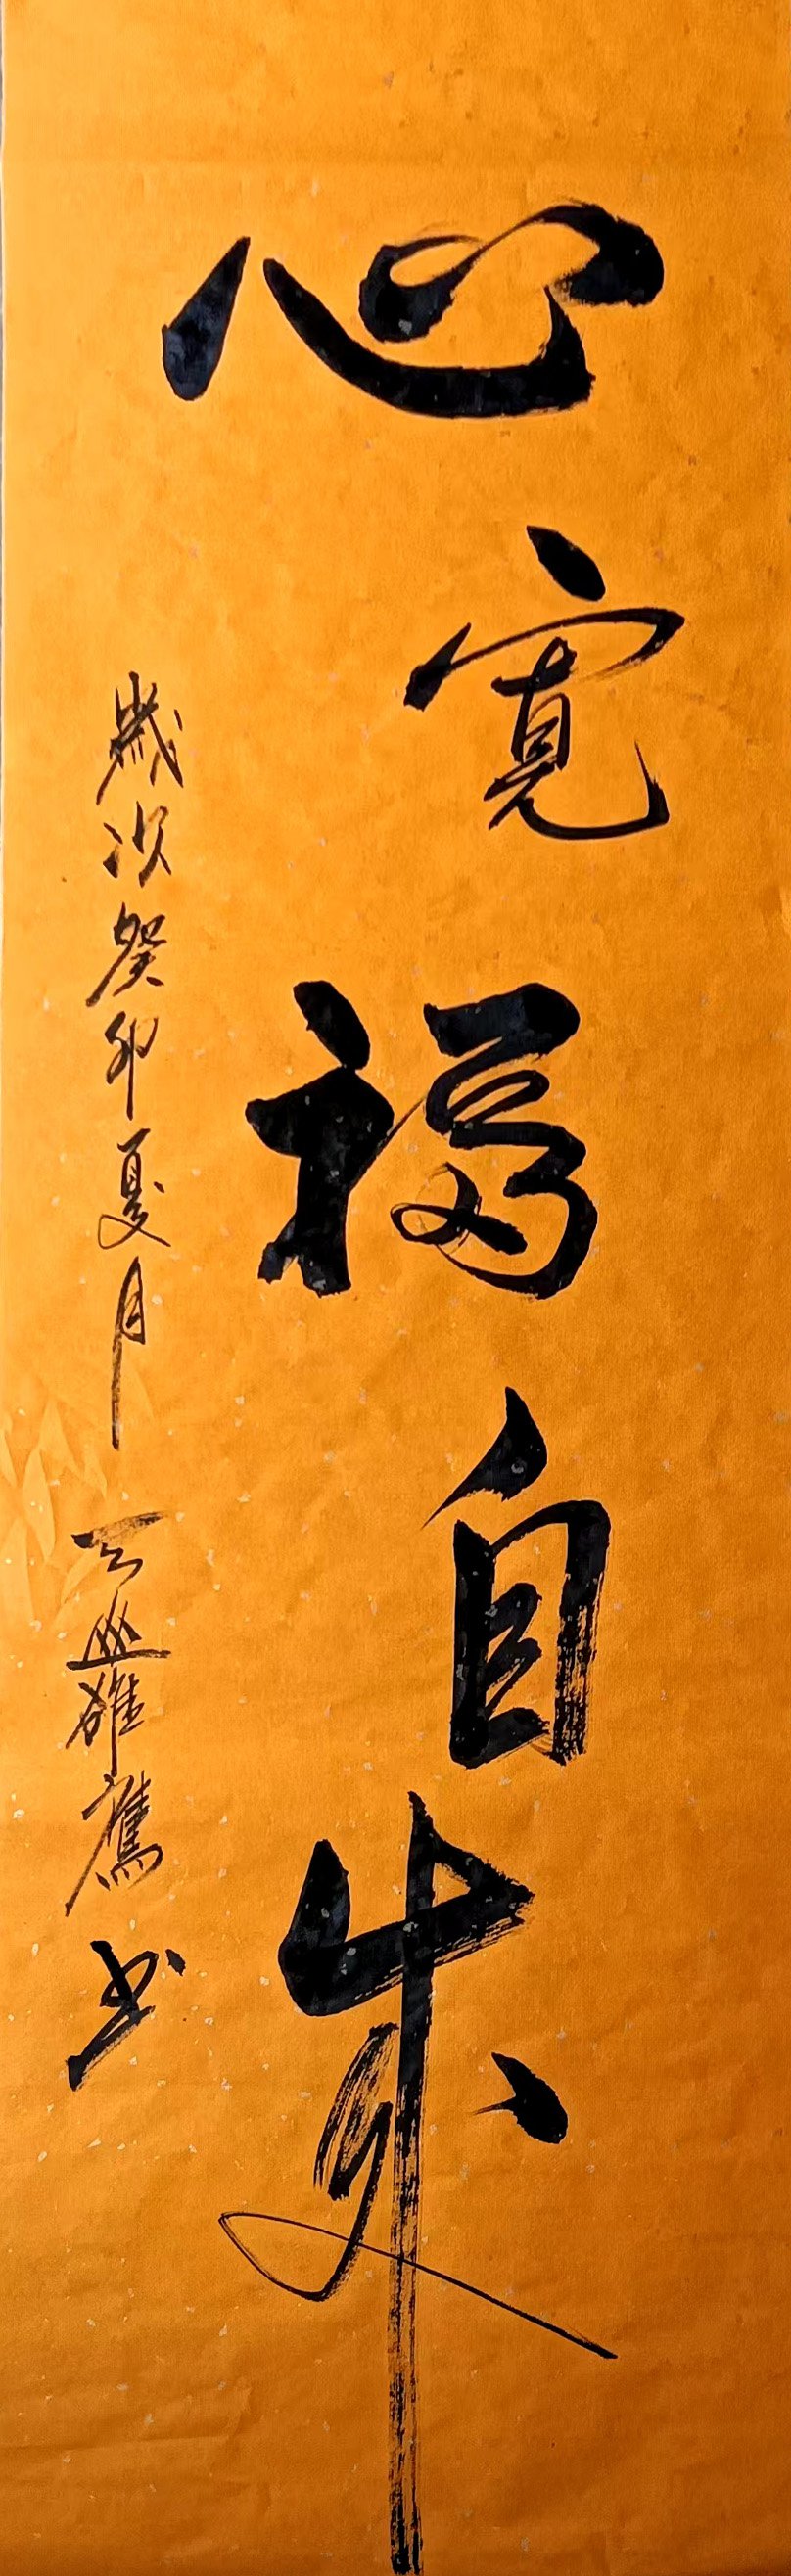 心寬福自来
歲次癸卯夏月 雄鷹书